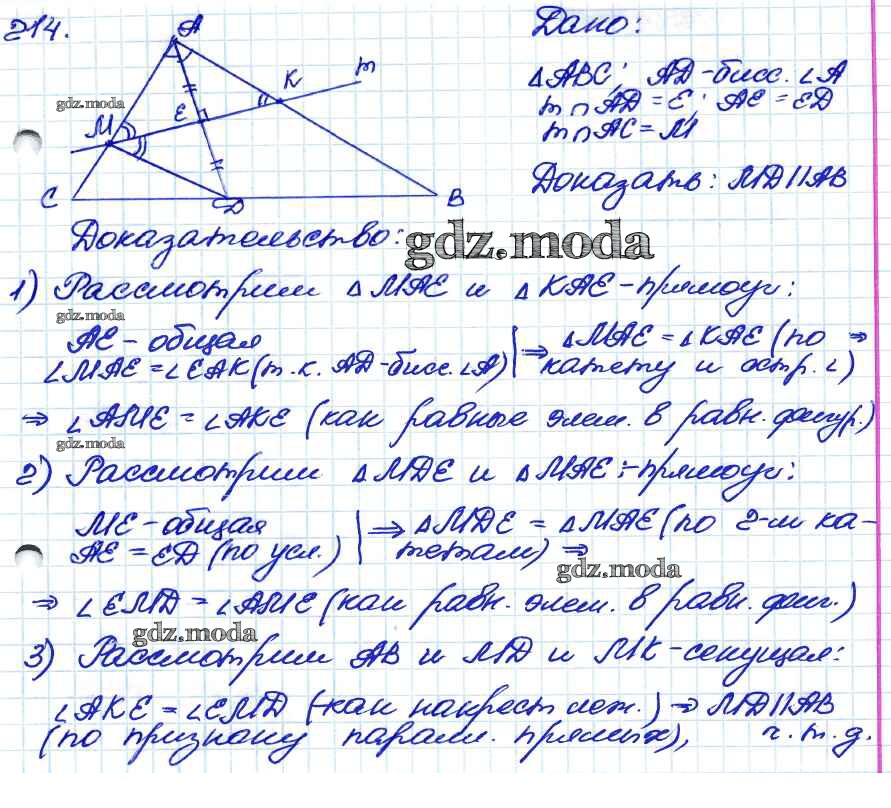 214.
Дано:
△ABC; AD-бисс. ∠A
m∩AD=E; AE=ED
m∩AC=M
Доказать: MD||AB
A
K
m
E
M
C
D
B
gdz.moda
Доказательство:
gdz.moda
1) Рассмотрим △MAE и △KAE-прямоуг:
gdz.moda
AE-общая
∠MAE=∠EAK(т.к. AD-бисс.∠A)
⇒ △MAE=△KAE(по
катету и остр.∠) ⇒
⇒ ∠AME=∠AKE (как равные элем. в равн. фигур.)
gdz.moda
2) Рассмотрим △MDE и △MAE:-прямоуг:
ME-общая
AE=ED (по усл.)
⇒ △MDE=△MAE(по 2-м ка-
тетам) ⇒
gdz.moda
⇒ ∠EMD=∠AME(как равн. элем. в равн. фиг.)
gdz.moda
3) Рассмотрим AB и MD и MK-секущая:
∠AKE=∠EMD (-как накрест леж.) ⇒ MD||AB
(по признаку паралл. прямых), ч.т.д.